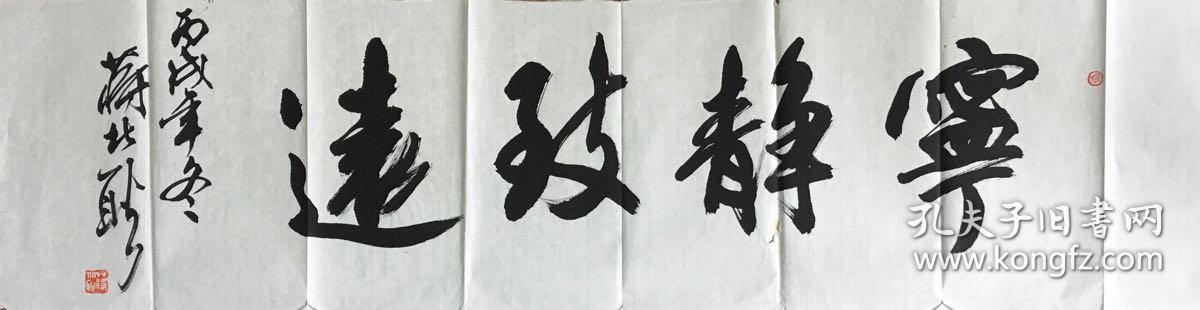 寧静致遠
丙戌年冬
蒋北耿
孔夫子旧书网
www.kongfz.com